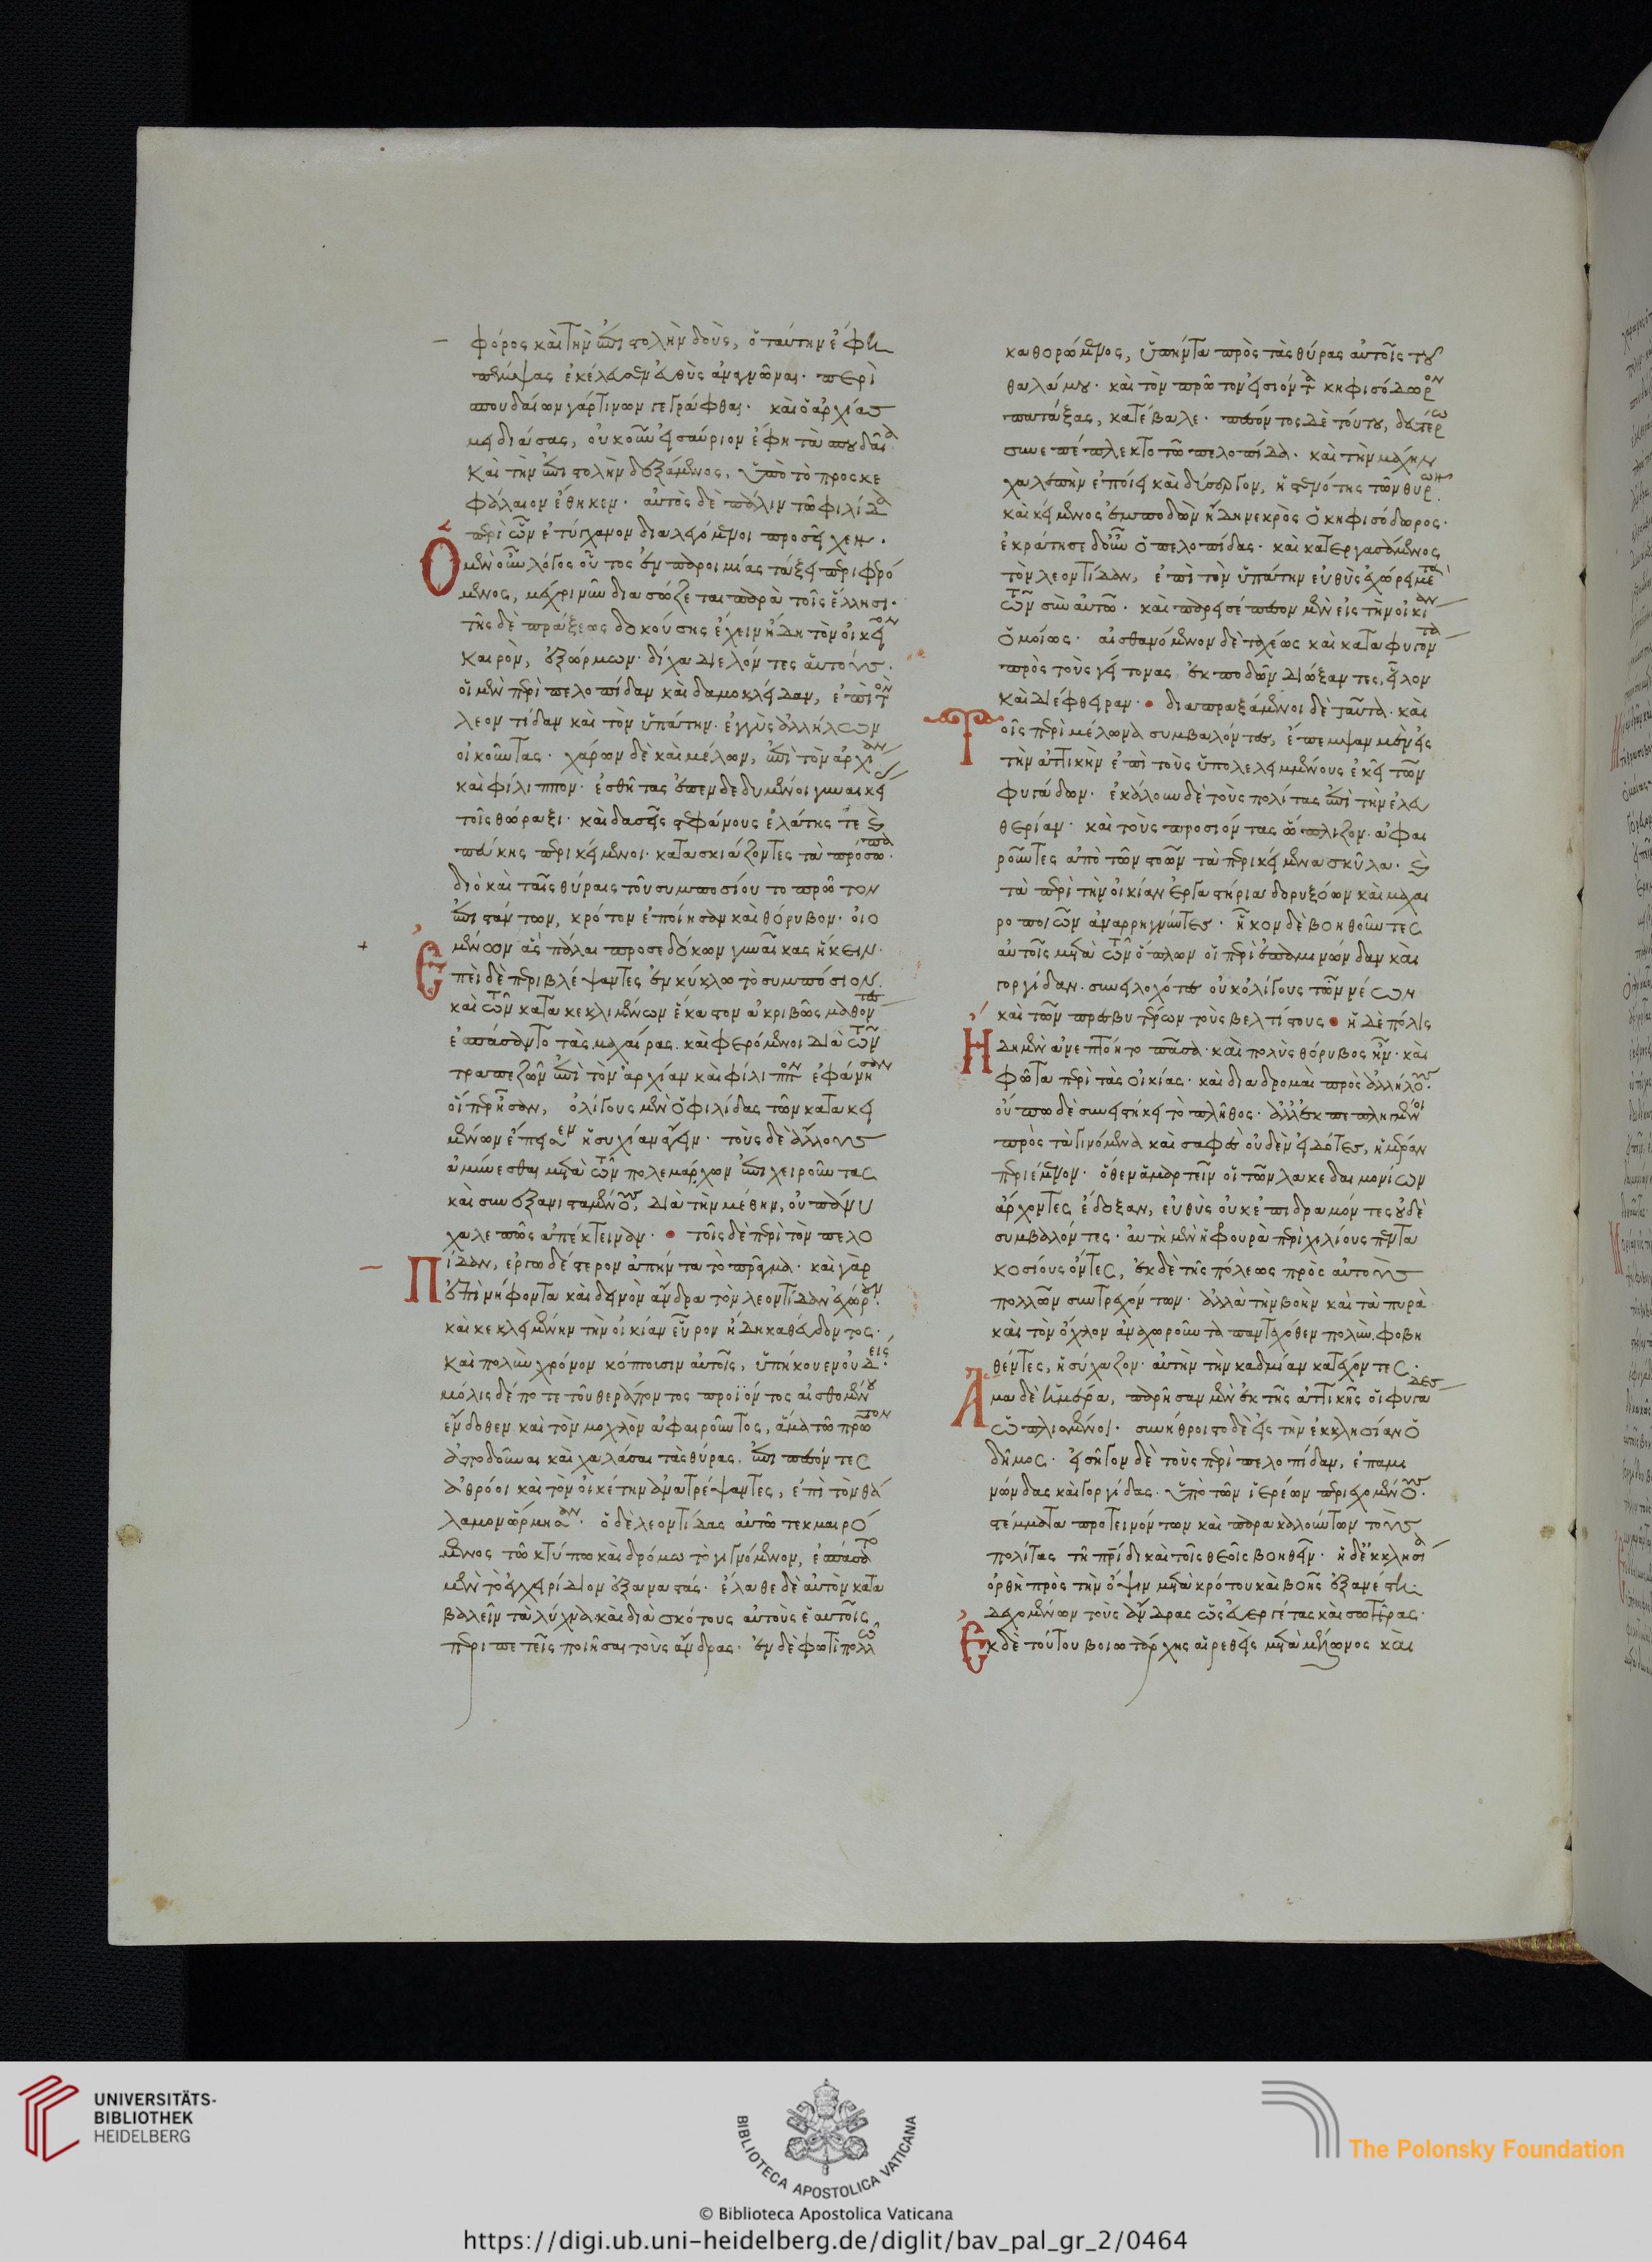 φόρος καὶ τὴν ἐπιστολὴν δοὺς, ὁ ταύτην ἔφη
πέμψας ἐκέλευσεν εὐθὺς ἀναγνῶναι· περὶ
σπουδαίων γάρ τινων γεγράφθαι· καὶ ὁ ἀρχίας
μειδιάσας, οὐκοῦν εἰς αὔριον ἔφη τὰ σπουδαῖα
καὶ τὴν ἐπιστολὴν δεξάμενος, ὑπὸ τὸ προσκε
φάλαιον ἔθηκεν· αὐτὸς δὲ πάλιν τῶ φιλίδα
περὶ ὧν ἐτύγχανον διαλεγόμενοι προσεῖχεν.
Ὁ μὲν οὖν λόγος οὗτος ἐν παροιμίας τάξει περιφερό
μενος, μέχρι νῦν διασώζεται παρὰ τοῖς ἕλλησι.
τῆς δὲ πράξεως δοκούσης ἔχειν ἤδη τὸν οἰκεῖον
καιρὸν, ἐξώρμων· δίχα διελόντες αὑτούς.
οἱ μὲν περὶ πελοπίδαν καὶ δαμοκλείδαν, ἐπὶ τὸν
λεοντίδαν καὶ τὸν ὑπάτην· ἐγγὺς ἀλλήλων
οἰκοῦντας· χάρων δὲ καὶ μέλων, ἐπὶ τὸν ἀρχίαν
καὶ φίλιππον· ἐσθῆτας ἐπενδεδυμένοι γυναικεί
τοῖς θώραξι· καὶ δασεῖς στεφάνους ἐλάτης τε καὶ
πεύκης περικείμενοι· κατασκιάζοντες τὰ πρόσωπα.
διὸ καὶ ταῖς θύραις τοῦ συμποσίου τὸ πρῶτον
ἐπιστάντων, κρότον ἐποίησαν καὶ θόρυβον· οἰο
μένων ἃς πάλαι προσεδόκων γυναῖκας ἥκειν·
Ἐπεὶ δὲ περιβλέψαντες ἐν κύκλω τὸ συμπόσιον
καὶ τῶν κατακεκλιμένων ἕκαστον ἀκριβῶς μαθόντες
ἐσπάσαντο τὰς μαχαίρας· καὶ φερόμενοι διὰ τῶν
τραπεζῶν ἐπὶ τὸν ἀρχίαν καὶ φίλιππον ἐφάνησαν
οἵπερ ἦσαν, ὀλίγους μὲν ὁ φιλίδας τῶν κατακει
μένων ἔπεισεν ἡσυχίαν ἄγειν· τοὺς δὲ ἄλλους
ἀμύνεσθαι μετὰ τῶν πολεμάρχων ἐπιχειροῦντας
καὶ συνεξανισταμένους, διὰ τὴν μέθην, οὐ πάνυ
χαλεπῶς ἀπέκτειναν· τοῖς δὲ περὶ τὸν πελο
Πίδαν, ἐργωδέστερον ἀπήντα τὸ πρᾶγμα· καὶ γὰρ
ἐπὶ νήφοντα καὶ δεινὸν ἄνδρα τὸν λεοντίδαν ἐχώρουν.
καὶ κεκλεισμένην τὴν οἰκίαν εὗρον ἤδη καθεύδοντος·
καὶ πολὺν χρόνον κόπτουσιν αὐτοῖς, ὑπήκουεν οὐδείς.
μόλις δέ ποτε τοῦ θεράποντος προϊόντος αἰσθομένου
ἔνδοθεν καὶ τὸν μοχλὸν ἀφαιροῦντος, ἅμα τῶ πρῶτον
ἐνδοῦναι καὶ χαλάσαι τὰς θύρας, ἐπιπεσόντες
ἀθρόοι καὶ τὸν οἰκέτην ἀνατρέψαντες, ἐπὶ τὸν θά
λαμον ὥρμησαν· ὁ δὲ λεοντίδας αὐτῶ τεκμαιρό
μενος τῶ κτύπω καὶ δρόμω τὸ γιγνόμενον, ἐσπάσατο
μὲν τὸ ἐγχειρίδιον ἐξαναστάς· ἔλαθε δὲ αὐτὸν κατα
βαλεῖν τὰ λύχνα καὶ διὰ σκότους αὐτοὺς ἑαυτοῖς
περιπετεῖς ποιῆσαι τοὺς ἄνδρας· ἐν δὲ φωτὶ πολλῶ
καθορώμενος, ὑπήντα πρὸς τὰς θύρας αὐτοῖς τοῦ
θαλάμου· καὶ τὸν πρῶτον εἰσιόντα κηφισόδωρον
πατάξας, κατέβαλε· πεσόντος δὲ τούτου, δευτέρω
συνεπέπλεκτο τῶ πελοπίδα· καὶ τὴν μάχην
χαλεπὴν ἐποίει καὶ δύσεργον, ἡ στενότης τῶν θυρῶν
καὶ κείμενος ἐμποδὼν ἤδη νεκρὸς ὁ κηφισόδωρος.
ἐκράτησε δ' οὖν ὁ πελοπίδας· καὶ κατεργασάμενος
τὸν λεοντίδαν, ἐπὶ τὸν ὑπάτην εὐθὺς ἐχώρει μετὰ
τῶν σὺν αὐτῶ· καὶ παρεισέπεσον μὲν εἰς τὴν οἰκίαν
ὁμοίως· αἰσθανόμενον δὲ ταχέως καὶ καταφυγόντα
πρὸς τοὺς γείτονας ἐκ ποδῶν διώξαντες, εἷλον
καὶ διέφθειραν· διαπραξάμενοι δὲ ταῦτα· καὶ
Τοῖς περὶ μέλωνα συμβαλόντες, ἔπεμψαν μὲν εἰς
τὴν ἀττικὴν ἐπὶ τοὺς ὑπολελειμμένους ἐκεῖ τῶν
φυγάδων· ἐκάλουν δὲ τοὺς πολίτας ἐπὶ τὴν ἐλευ
θερίαν· καὶ τοὺς προσιόντας ὥπλιζον· ἀφαι
ροῦντες ἀπὸ τῶν στοῶν τὰ περικείμενα σκῦλα· καὶ
τὰ περὶ τὴν οἰκίαν ἐργαστήρια δορυξόων καὶ μαχαι
ροποιῶν ἀναρρηγνύντες· ἧκον δὲ βοηθοῦντες
αὐτοῖς μετὰ τῶν ὅπλων οἱ περὶ ἐπαμινώνδαν καὶ
γοργίδαν· συνειλοχότες οὐκ ὀλίγους τῶν νέων
καὶ τῶν πρεσβυτέρων τοὺς βελτίστους· ἡ δὲ πόλις
Ἤδη μὲν ἀνεπτόητο πᾶσα· καὶ πολὺς θόρυβος ἦν· καὶ
φῶτα περὶ τὰς οἰκίας· καὶ διαδρομαὶ πρὸς ἀλλήλους.
οὔπω δὲ συνειστήκει τὸ πλῆθος· ἀλλ' ἐκπεπληγμένοι
πρὸς τὰ γινόμενα καὶ σαφὲς οὐδὲν εἰδότες, ἡμέραν
περιέμενον· ὅθεν ἁμαρτεῖν οἱ τῶν λακεδαιμονίων
ἄρχοντες ἔδοξαν, εὐθὺς οὐκ ἐπιδραμόντες οὐδὲ
συμβαλόντες· αὐτὴ μὲν ἡ φουρὰ περὶ χιλίους πεντα
κοσίους ὄντες, ἐκ δὲ τῆς πόλεως πρὸς αὐτοὺς
πολλῶν συντρεχόντων· ἀλλὰ τὴν βοὴν καὶ τὰ πυρὰ
καὶ τὸν ὄχλον ἀναχωροῦντα πανταχόθεν πολὺν φοβη
θέντες, ἡσύχαζον· αὐτὴν τὴν καδμείαν κατέχοντες·
Ἅμα δὲ ἡμέρα, παρῆσαν μὲν ἐκ τῆς ἀττικῆς οἱ φυγάδες
ὡπλισμένοι· συνήθροιστο δὲ εἰς τὴν ἐκκλησίαν ὁ
δῆμος· εἰσῆγον δὲ τοὺς περὶ πελοπίδαν, ἐπαμι
νώνδας καὶ γοργίδας· ὑπὸ τῶν ἱερέων περιεχομένους.
στέμματα προτεινόντων καὶ παρακαλούντων τοὺς
πολίτας τῆ πατρίδι καὶ τοῖς θεοῖς βοηθεῖν· ἡ δ' ἐκκλησία
ὀρθὴ πρὸς τὴν ὄψιν μετὰ κρότου καὶ βοῆς ἐξανέστη
δεχομένων τοὺς ἄνδρας ὡς εὐεργέτας καὶ σωτῆρας·
Ἐκ δὲ τούτου βοιωτάρχης αἱρεθεὶς μετὰ μέλωνος καὶ
UNIVERSITÄTS-
BIBLIOTHEK
HEIDELBERG
BIBLIOTECA APOSTOLICA VATICANA
The Polonsky Foundation
© Biblioteca Apostolica Vaticana
https://digi.ub.uni-heidelberg.de/diglit/bav_pal_gr_2/0464